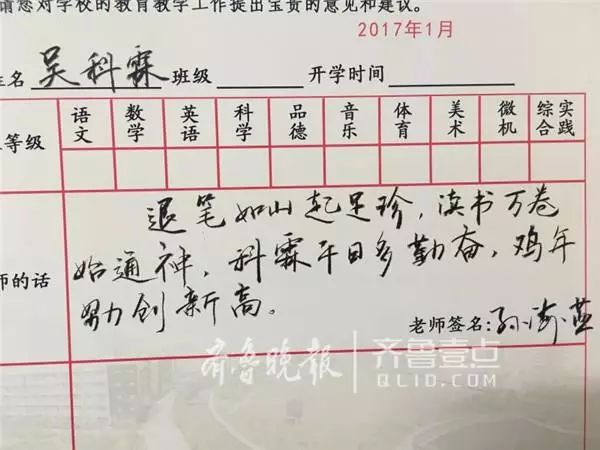 请您对学校的教育教学工作提出宝贵的意见和建议。
2017年1月
名 吴科霖 班级 开学时间
等级 语文 数学 英语 科学 品德 音乐 体育 美术 微机 综合实践
退笔如山起足珍，读书万卷
始通神，科霖平日多勤奋，鸡年
师的话
努力创新高。
老师签名:孙海燕
齐鲁晚报 齐鲁壹点
QLID.COM